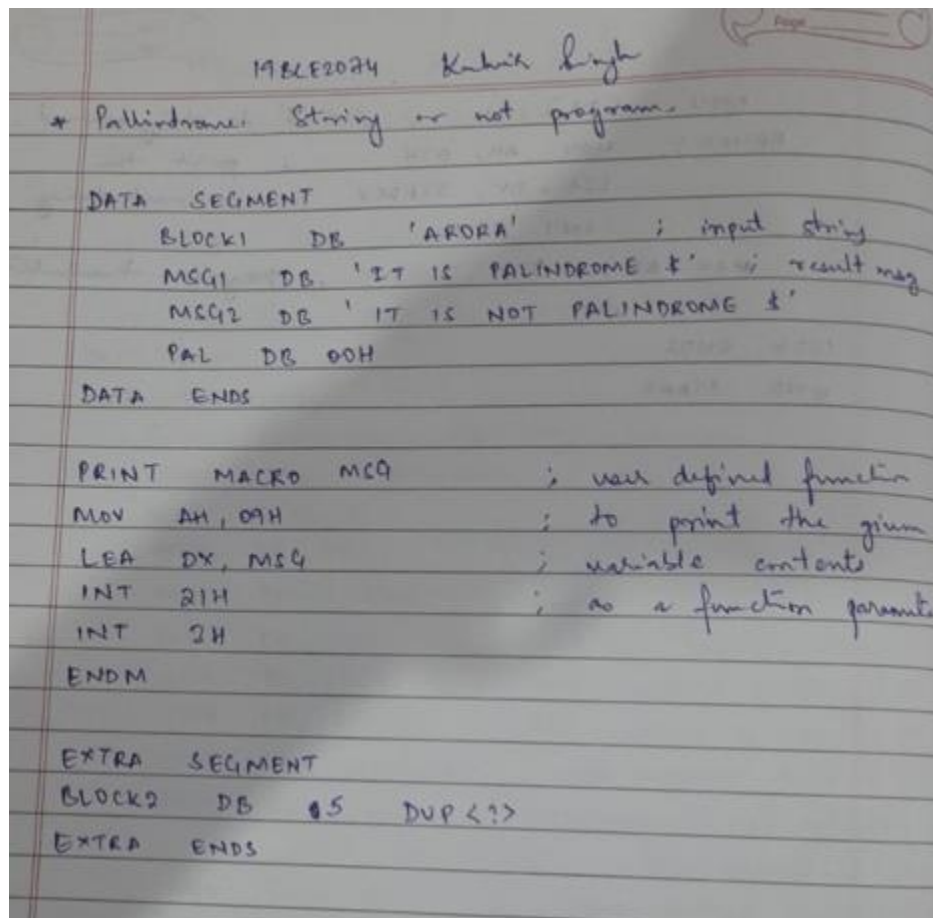 Page
19BCE2074
* Pallindrome String or not program.
DATA SEGMENT
BLOCK1 DB 'ARORA' ; input string
MSG1 DB 'IT IS PALINDROME $' ; result msg
MSG2 DB ' IT IS NOT PALINDROME $'
PAL DB 00H
DATA ENDS
PRINT MACRO MSG ; user defined function
MOV AH, 09H ; to print the given
LEA DX, MSG ; variable contents
INT 21H ; as a function paramete
INT 3H
ENDM
EXTRA SEGMENT
BLOCK2 DB 5 DUP <?>
EXTRA ENDS